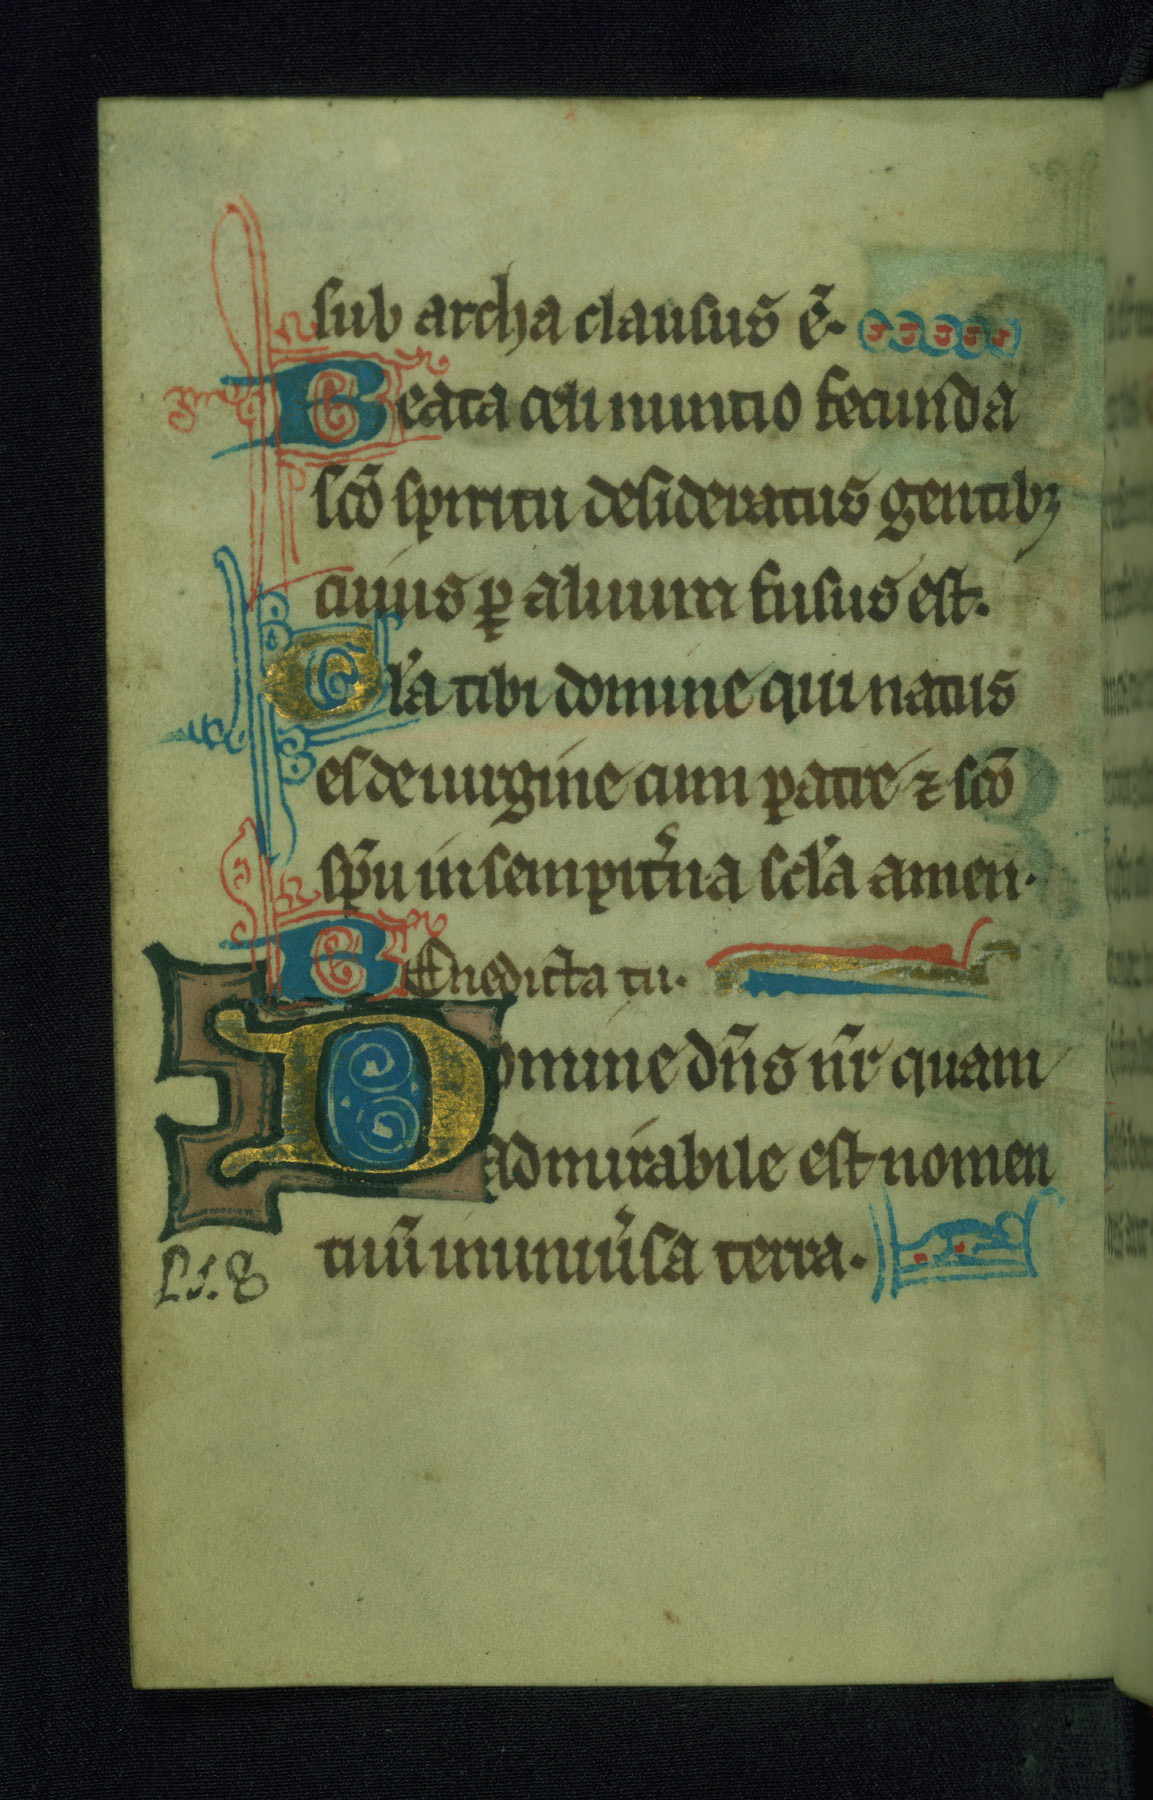 sub archa clausus ē.
Beata celi nuntio fecunda
scō spiritu desideratus gentibꝫ
cuius ꝑ aluum fusus est.
Gľa tibi domine qui natus
es de uirgine cum patre ⁊ scō
sp̄u in sempit̉na scľa amen.
Benedicta tu.
Domine dn̄s nr̄ quam
admirabile est nomen
tuū in uniủsa terra.
Ps. 8